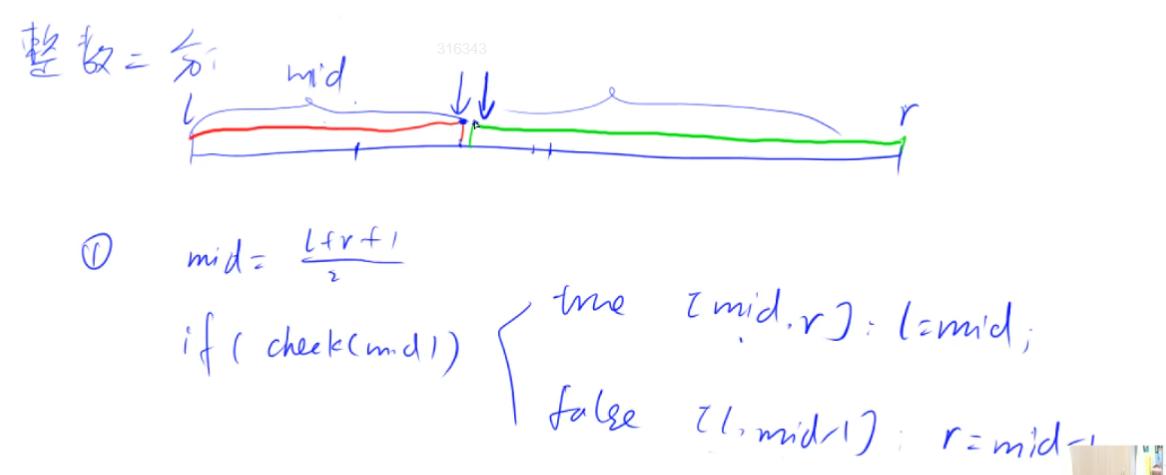 整数二分:
316343
mid
l
r
① mid = (l+r+1)/2
if ( check(mid) )
true [mid, r] : l=mid;
false [l, mid-1] : r=mid-1